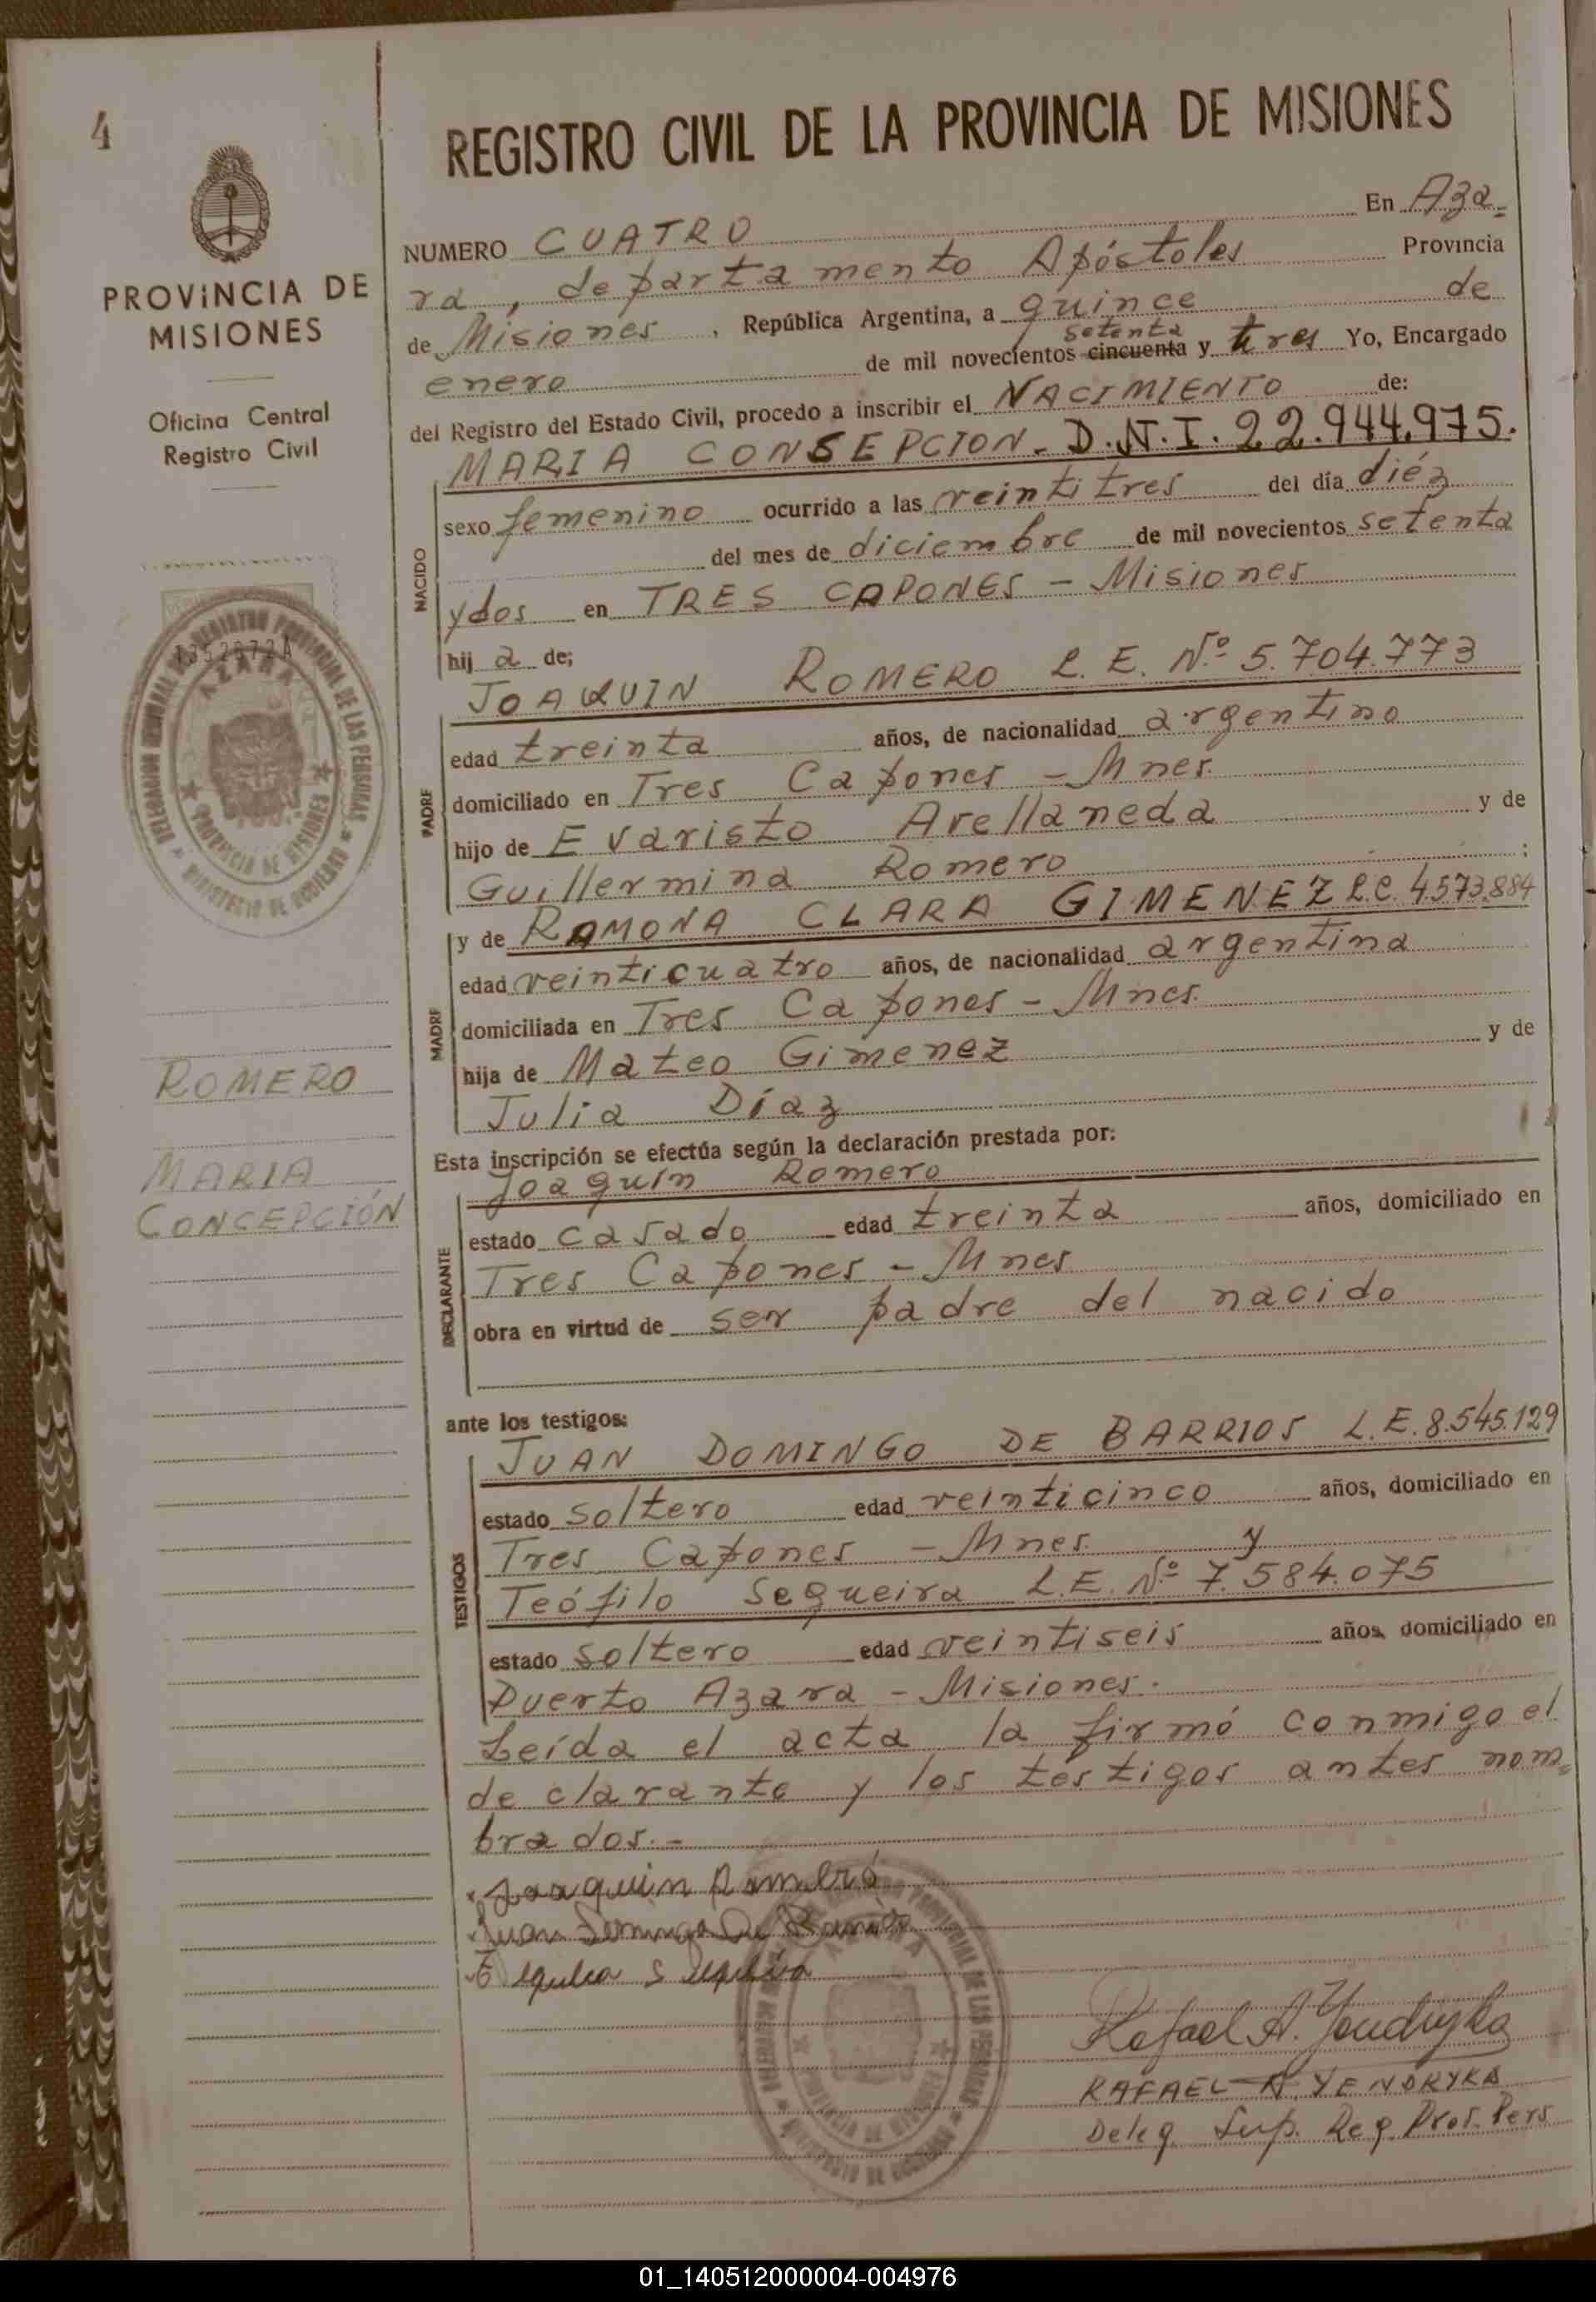 4
PROVINCIA DE
MISIONES
Oficina Central
Registro Civil
DELEGACION REGISTRO PROVINCIAL DE LAS PERSONAS
AZARA
PROVINCIA DE MISIONES
MINISTERIO DE GOBIERNO
ROMERO
MARIA
CONCEPCIÓN
REGISTRO CIVIL DE LA PROVINCIA DE MISIONES
NUMERO CUATRO En Aza=
ra, departamento Apóstoles Provincia
de Misiones, República Argentina, a quince de
setenta
enero de mil novecientos cincuenta y tres Yo, Encargado
del Registro del Estado Civil, procedo a inscribir el NACIMIENTO de:
MARIA CONSEPCION- D.N.I. 22.944.975.
NACIDO
sexo femenino ocurrido a las veintitres del día diéz
del mes de diciembre de mil novecientos setenta
y dos en TRES CAPONES - Misiones
hij a de;
JOAQUIN ROMERO L.E. Nº 5.704.773
PADRE
edad treinta años, de nacionalidad argentino
domiciliado en Tres Capones - Mnes.
hijo de Evaristo Avellaneda y de
Guillermina Romero ;
y de RAMONA CLARA GIMENEZ L.C. 4.573.884
MADRE
edad veinticuatro años, de nacionalidad argentina
domiciliada en Tres Capones - Mnes.
hija de Mateo Gimenez y de
Julia Díaz
Esta inscripción se efectúa según la declaración prestada por:
Joaquín Romero
DECLARANTE
estado casado edad treinta años, domiciliado en
Tres Capones - Mnes
obra en virtud de ser padre del nacido
ante los testigos:
JUAN DOMINGO DE BARRIOS L.E. 8.545.129
TESTIGOS
estado soltero edad veinticinco años, domiciliado en
Tres Capones - Mnes. y
Teófilo Sequeira L.E. Nº 7.584.075
estado soltero edad veintiseis años, domiciliado en
Puerto Azara - Misiones.
Leída el acta la firmó conmigo el
declarante y los testigos antes nom=
brados.-
Joaquin Romero
Juan Domingo De Barrios
Rafael A. Yendryka
RAFAEL A. YENDRYKA
Deleg. Sup. Reg. Prov. Pers
01_140512000004-004976